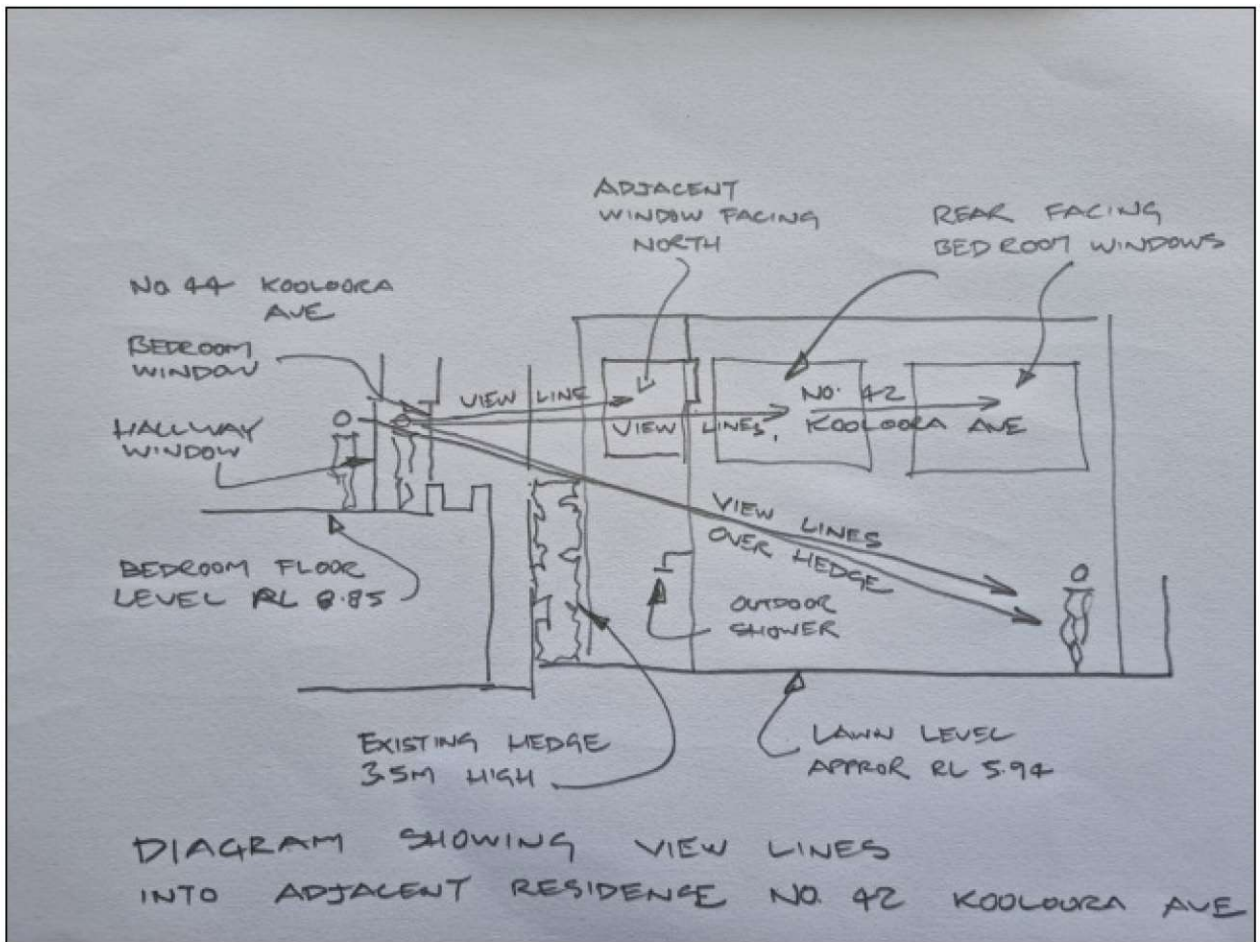 ADJACENT
WINDOW FACING
NORTH
REAR FACING
BEDROOM WINDOWS
NO 44 KOOLOORA
AVE
BEDROOM
WINDOW
HALLWAY
WINDOW
VIEW LINE
VIEW LINES,
NO. 42
KOOLOORA AVE
VIEW LINES
OVER HEDGE
BEDROOM FLOOR
LEVEL RL 8.85
OUTDOOR
SHOWER
EXISTING HEDGE
3.5M HIGH
LAWN LEVEL
APPROX RL 5.94
DIAGRAM SHOWING VIEW LINES
INTO ADJACENT RESIDENCE NO. 42 KOOLOURA AVE